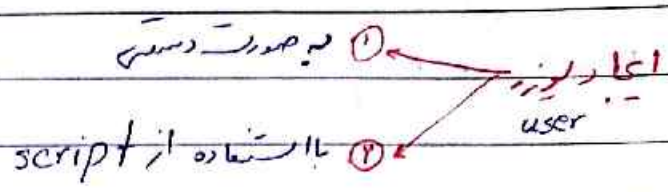 ایجاد یوزر
user
① به صورت دستی
② با استفاده از script